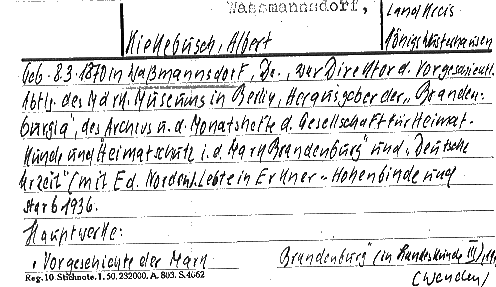 Wassmannsdorf,
Landkreis
Königswusterhausen
Kiekebusch, Albert
Geb. 8.3.1870 in Waßmannsdorf, Dr., war Direktor d. Vorgeschichtl.
Abtlg. des Märk. Museums in Berlin, Herausgeber der „Branden-
burgia", des Archivs u. d. Monatshefte d. Gesellschaft für Heimat-
kunde und Heimatschutz i. d. Mark Brandenburg" und „Deutsche
Urzeit" (mit Ed. Norden). Lebte in Erkner-Hohenbinde und
starb 1936.
Hauptwerke:
„Vorgeschichte der Mark Brandenburg" (in Landeskunde III),
(wenden)
Reg. 10 Stichnote. 1. 50. 232000. A. 803. S. 4662